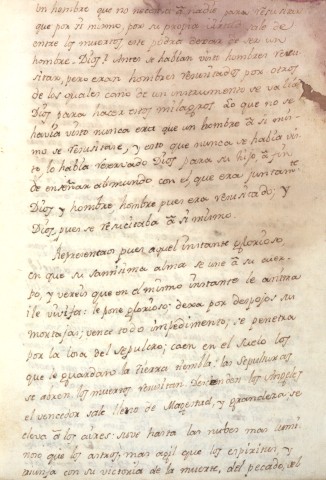 Un hombre que no necesita à nadie para resusitar
que por si mismo, por su propia virtud sale de
entre los muertos, este podra dexar de ser un
hombre Dios? Antes se habian visto hombres resu-
sitar, pero eran hombres resusitados por otros
de los quales como de un instrumento se valia
Dios para hacer estos milagros. Lo que no se
havia visto nunca era que un hombre à si mis-
mo se resusitase, y esto que nunca se habia vis-
to, lo habia reservado Dios para su hijo à fin
de enseñar al mundo con el que era juntamte
Dios y hombre, hombre pues era resusitado, y
Dios pues se resusitaba à si mismo.
Representaos pues aquel instante glorioso,
en que su santisima alma se une à su cuer-
po, y vereis que en el mismo instante le anima
i le vivifica: le pone glorioso: dexa por despojos su
mortaja: vence todo impedimento; se penetra
por la losa del sepulcro; caen en el suelo los
que le guardan: la tierra tiembla: los sepulcros
se abren, los muertos resusitan: Desiendan los Angeles
el vencedor sale lleno de Magestad, y grandeza: se
eleva à los aires: sube hasta las nubes mas lumi-
noso que los astros, mas agil que los espiritus, y
triunfa con su victoria de la muerte, del pecado,